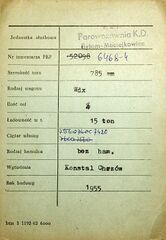 Jednostka służbowa
Parowozownia K.D.
Bytom-Maciejkowice
Nr inwentarza PKP 52098 6468-4
Szerokość toru 785 mm
Rodzaj wagonu Wdx
Ilość osi 4
Ładowność w t. 15 ton
Ciężar własny 7420
Rodzaj hamulca bez ham.
Wytwórnia Konstal Chrzów
Rok budowy 1955